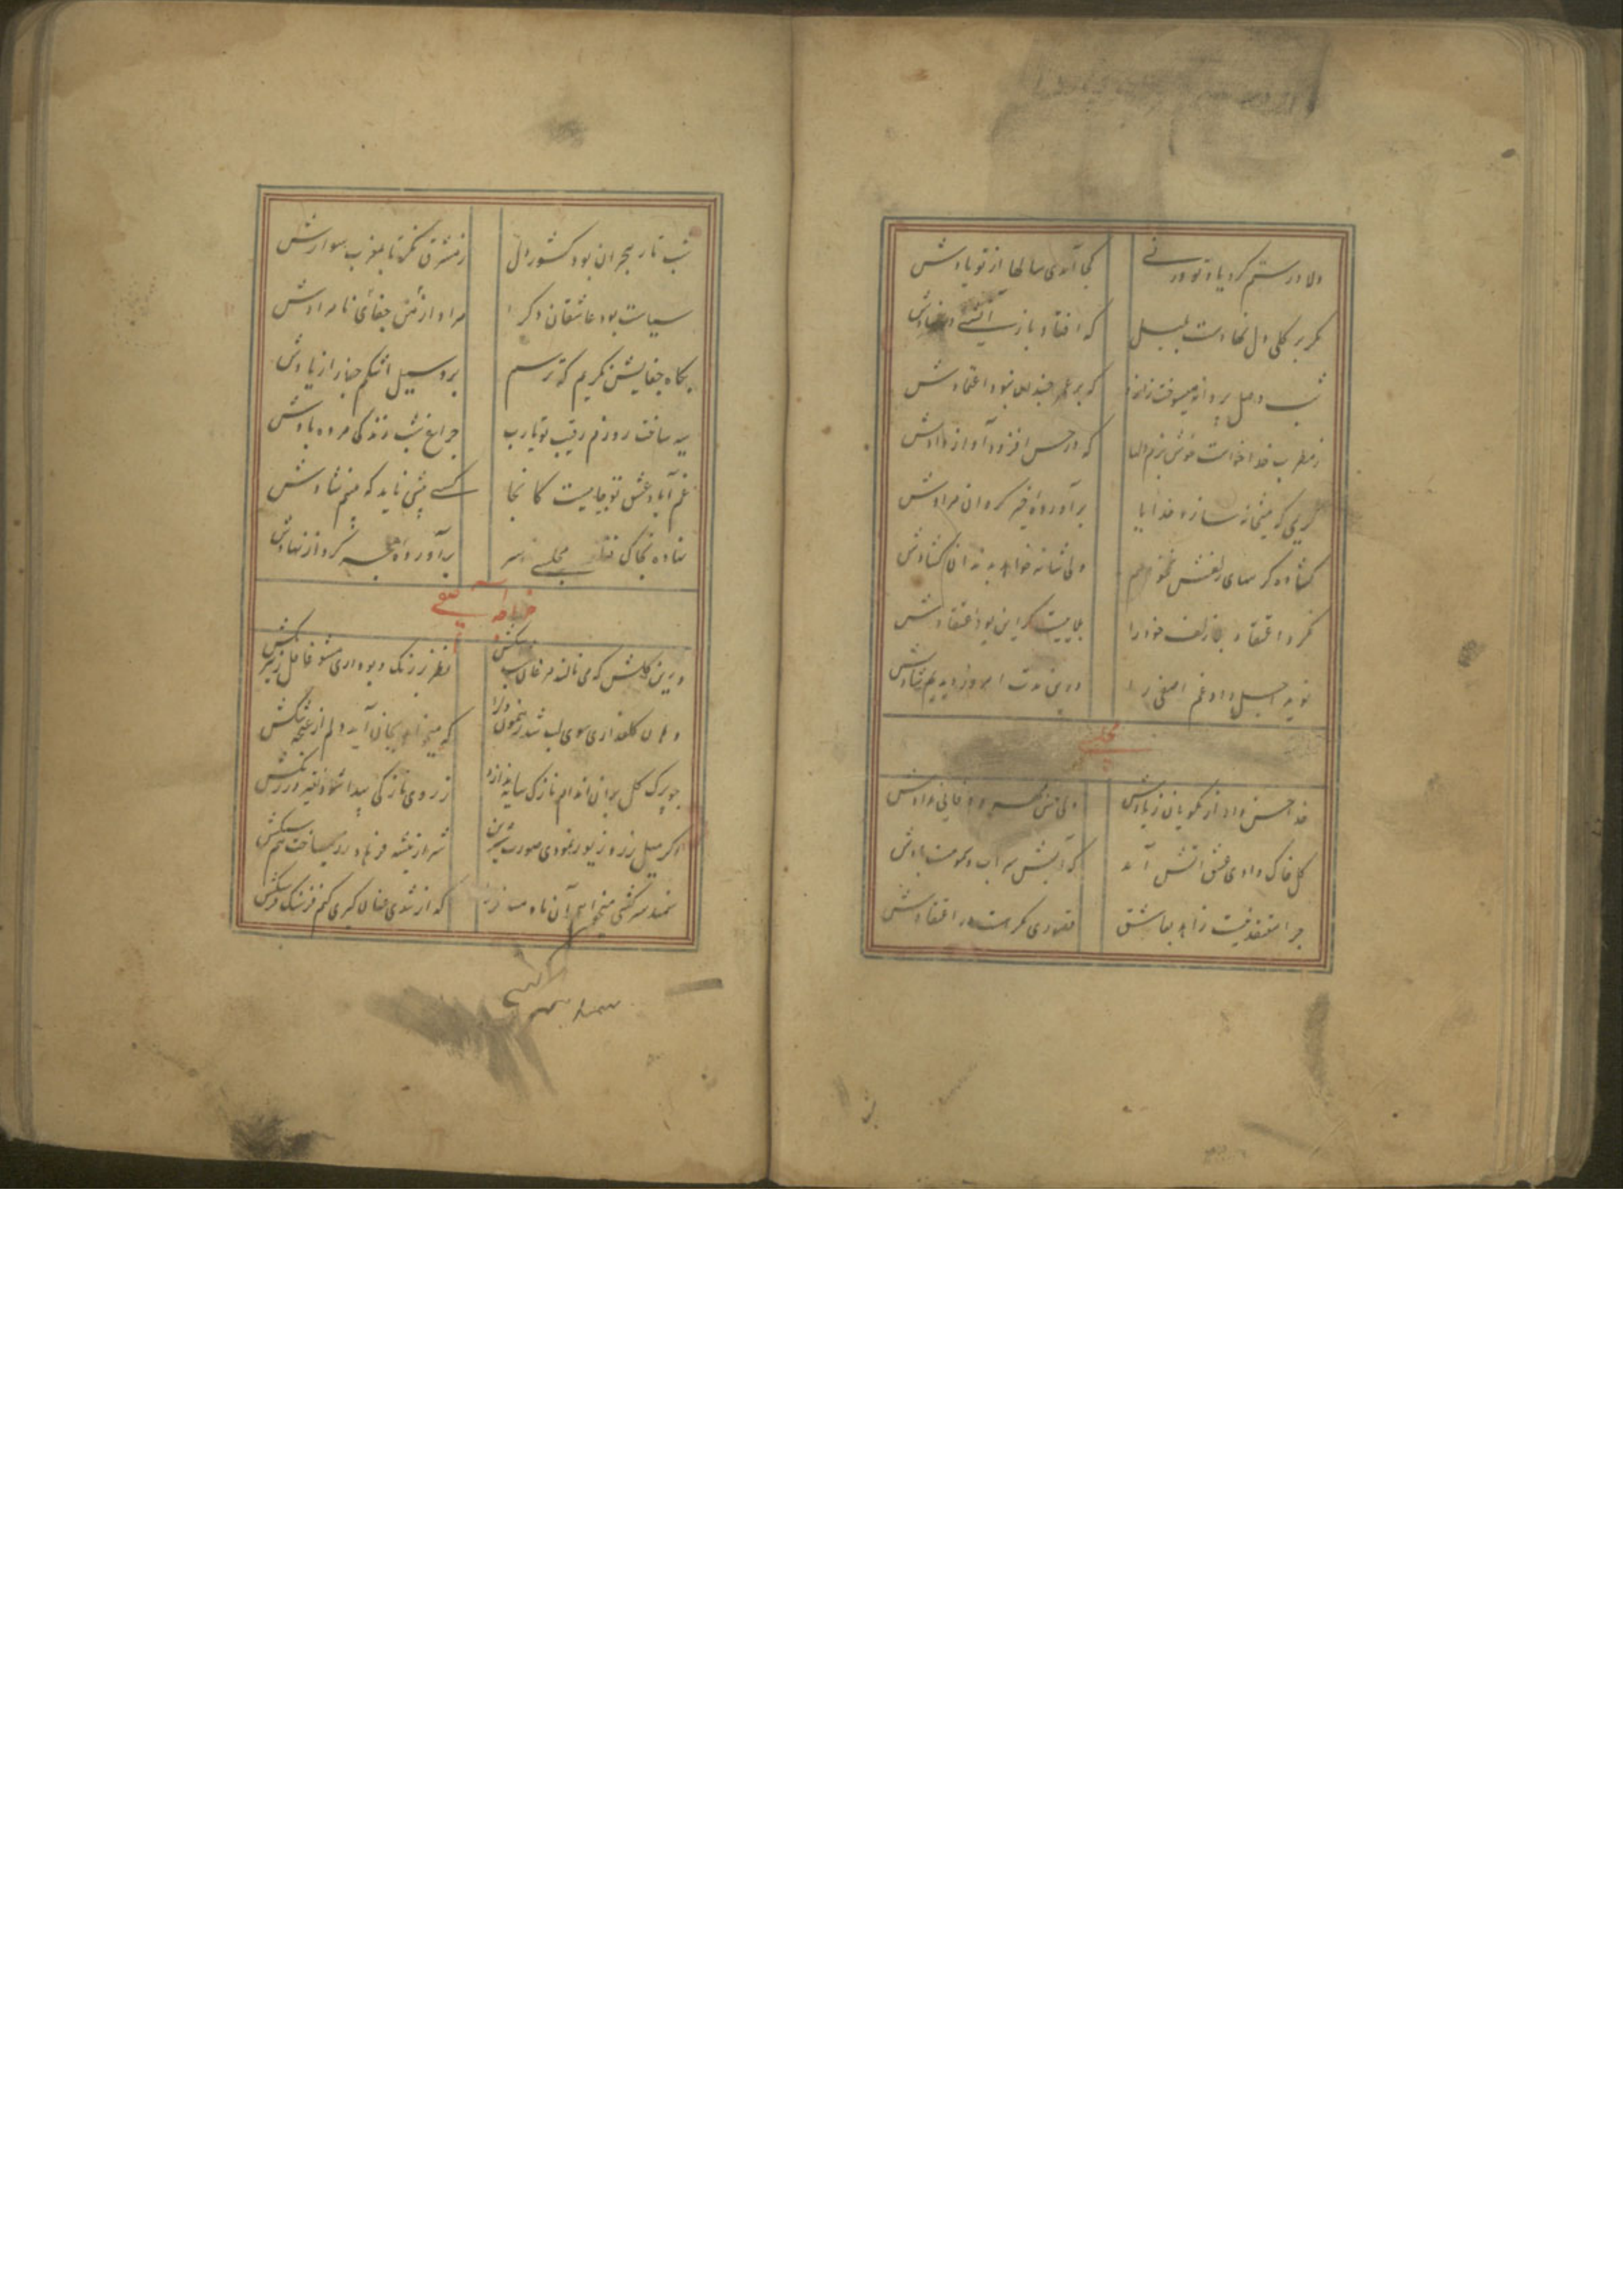 دلا در ستم کرد یاد تو ورنی کجا آمدی سالها از تو یادش
مگر بر گلی دل نهادست بلبل که افتاد باز آتشی در نهادش
شب وصل پروانه میسوخت زانرو که بر عمر چندان نبود اعتمادش
ز مطرب خدا خواست خوش بزم دلها که در حسن افزود آواز دادش
کریمی که میخانه سازد خدایا برآورده خیر گردان مرادش
گشاده گرههای زلفش نخواهم ولی شانه خواهد به دندان گشادش
نکرد اعتقاد بلا زلف خود را بلاییست گر این بود اعتقادش
نوید اجل داد غم آصفی را درین مدت امروز دیدیم شادش
مجلسی
خدا حسن داد از نکویان زیادش ولی مهر و وفایی ندادش
گل خاک وادی عشق آتش آمد که آتش سراب و سمومست بادش
چرا معتقد نیست زاهد بعاشق قصوری مگر هست در اعتقادش
شب تار هجران بود کشور دل ز مشرق نگر تا بمغرب سوادش
سیاست بود عاشقان دگر را مراد از من جفای نامرادش
بگاه جفایش نگریم که ترسم برد سیل اشکم جفا را ز یادش
سیه ساخت روزم رقیب تو یارب چراغ شب زندگی مرده بادش
غم آباد عشق تو جاییست کانجا کسی پیش ناید که بینم شادش
نهاده بخاک مجلسی سر برآورده گرد از نهادش
خواجه آصفی
درین گلشن که می نالند مرغان نظر بر رنگ و بو داری مشو غافل ز نیرنگش
دهان گلعذاری سوی لب شد رهنمون دلرا که میخواهد بجان آید دلم از غنچه تنگش
چو برگ گل بر آن اندام نازک سایه اندازد ز روی نازکی پیدا شود تغییر در رنگش
اگر میل زر و زیور نمودی صورت شیرین شرار تیشه فرهاد زر میساخت هم سنگش
سمند سرکشی میخواهم آن ماه مسافر را که از تندی عنان گیری کنم فرسنگ فرسنگش